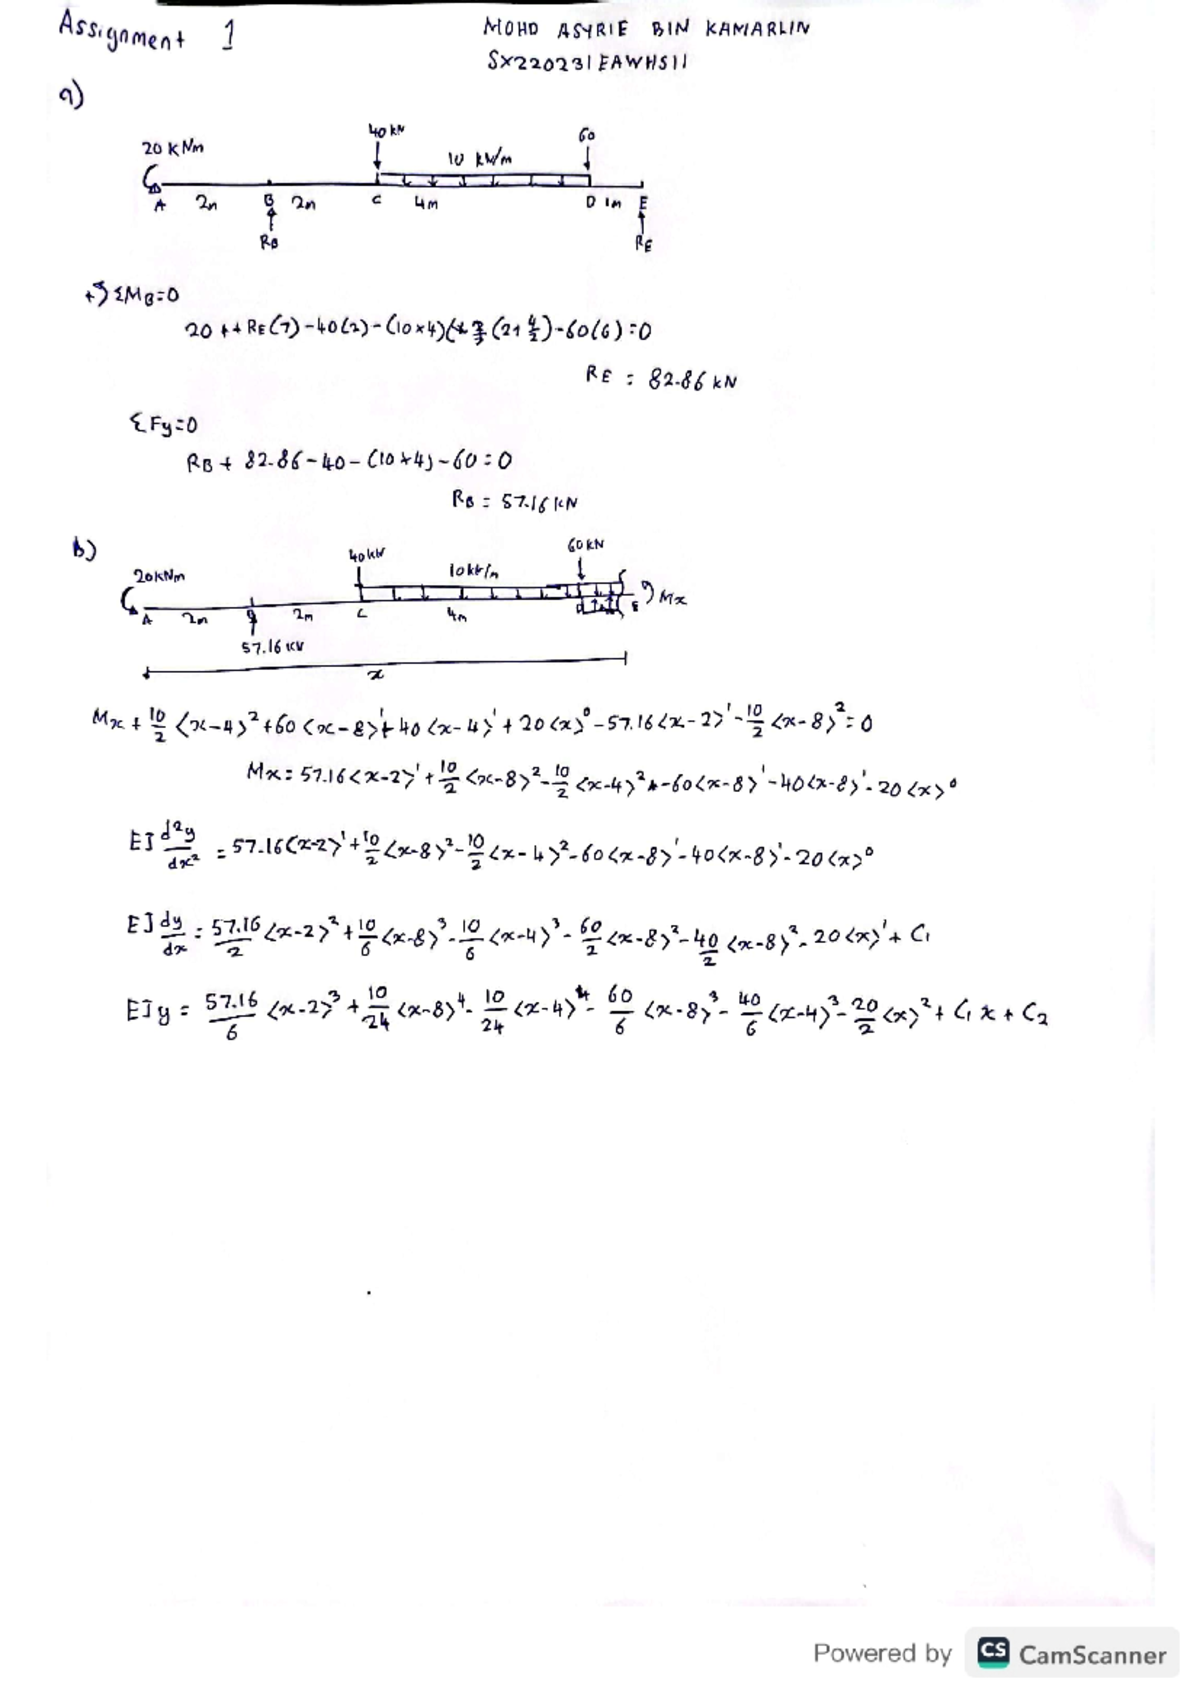 Assignment 1
MOHD ASYRIE BIN KAMARLIN
SX220231EAWHS11
a)
20 kNm
40 kN
10 kN/m
60
A 2m B 2m C 4m D 1m E
RB
RE
+ΣMB=0
20 + RE(7)-40(2)-(10×4)(2+4/2)-60(6)=0
RE = 82.86 kN
ΣFy=0
RB + 82.86-40-(10×4)-60=0
RB = 57.16 kN
b)
20kNm
40kN
10kN/m
60KN
Mx
A 2m B 2m C 4m D E
57.16 KN
x
Mx + 10/2 <x-4>² + 60<x-8>¹ + 40<x-4>¹ + 20<x>⁰ - 57.16<x-2>¹ - 10/2 <x-8>² = 0
Mx = 57.16<x-2>¹ + 10/2 <x-8>² - 10/2 <x-4>² - 60<x-8>¹ - 40<x-8>¹ - 20<x>⁰
EI d²y/dx² = 57.16<x-2>¹ + 10/2 <x-8>² - 10/2 <x-4>² - 60<x-8>¹ - 40<x-8>¹ - 20<x>⁰
EI dy/dx = 57.16/2 <x-2>² + 10/6 <x-8>³ - 10/6 <x-4>³ - 60/2 <x-8>² - 40/2 <x-8>² - 20<x>¹ + C1
EIy = 57.16/6 <x-2>³ + 10/24 <x-8>⁴ - 10/24 <x-4>⁴ - 60/6 <x-8>³ - 40/6 <x-4>³ - 20/2 <x>² + C1x + C2
Powered by CS CamScanner